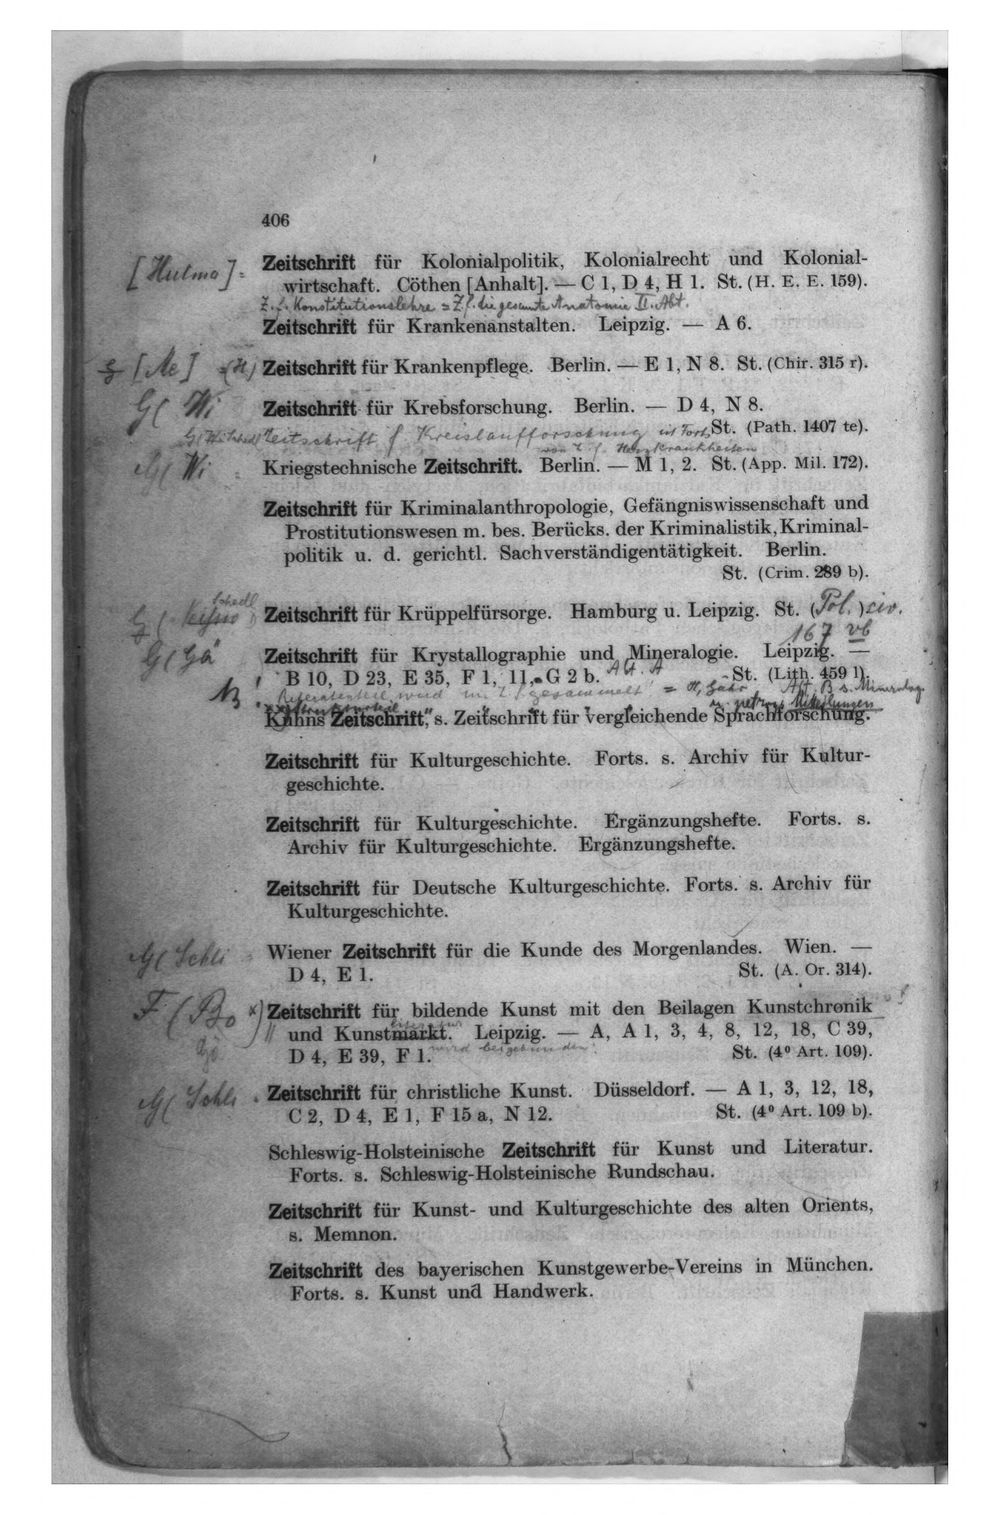 406
[Hulmo]
Zeitschrift für Kolonialpolitik, Kolonialrecht und Kolonial-
wirtschaft. Cöthen [Anhalt]. — C 1, D 4, H 1. St. (H. E. E. 159).
Z. f. Konstitutionslehre = Z f. die gesamte Anatomie II. Abt.
Zeitschrift für Krankenanstalten. Leipzig. — A 6.
[Ae] (H) Zeitschrift für Krankenpflege. Berlin. — E 1, N 8. St. (Chir. 315 r).
G( Wi Zeitschrift für Krebsforschung. Berlin. — D 4, N 8.
St. (Path. 1407 te).
Zeitschrift f. Kreislaufforschung ist Forts.
von Z. f. Herzkrankheiten
G( Wi Kriegstechnische Zeitschrift. Berlin. — M 1, 2. St. (App. Mil. 172).
Zeitschrift für Kriminalanthropologie, Gefängniswissenschaft und
Prostitutionswesen m. bes. Berücks. der Kriminalistik, Kriminal-
politik u. d. gerichtl. Sachverständigentätigkeit. Berlin.
St. (Crim. 289 b).
Zeitschrift für Krüppelfürsorge. Hamburg u. Leipzig. St. (Pol. ) civ.
167 vb
G( Gä Zeitschrift für Krystallographie und Mineralogie. Leipzig. —
B 10, D 23, E 35, F 1, 11, G 2 b. Abt. A St. (Lith. 459 l).
Referatenteil wird
Abt. B s. Mineralog.
u. petrogr. Mitteilungen
Kuhns Zeitschrift, s. Zeitschrift für vergleichende Sprachforschung.
Zeitschrift für Kulturgeschichte. Forts. s. Archiv für Kultur-
geschichte.
Zeitschrift für Kulturgeschichte. Ergänzungshefte. Forts. s.
Archiv für Kulturgeschichte. Ergänzungshefte.
Zeitschrift für Deutsche Kulturgeschichte. Forts. s. Archiv für
Kulturgeschichte.
G( Schli Wiener Zeitschrift für die Kunde des Morgenlandes. Wien. —
D 4, E 1. St. (A. Or. 314).
F (Bo x) Zeitschrift für bildende Kunst mit den Beilagen Kunstchronik
und Kunstmarkt. Leipzig. — A, A 1, 3, 4, 8, 12, 18, C 39,
D 4, E 39, F 1. wird beigebunden. St. (4° Art. 109).
G( Schli Zeitschrift für christliche Kunst. Düsseldorf. — A 1, 3, 12, 18,
C 2, D 4, E 1, F 15 a, N 12. St. (4° Art. 109 b).
Schleswig-Holsteinische Zeitschrift für Kunst und Literatur.
Forts. s. Schleswig-Holsteinische Rundschau.
Zeitschrift für Kunst- und Kulturgeschichte des alten Orients,
s. Memnon.
Zeitschrift des bayerischen Kunstgewerbe-Vereins in München.
Forts. s. Kunst und Handwerk.